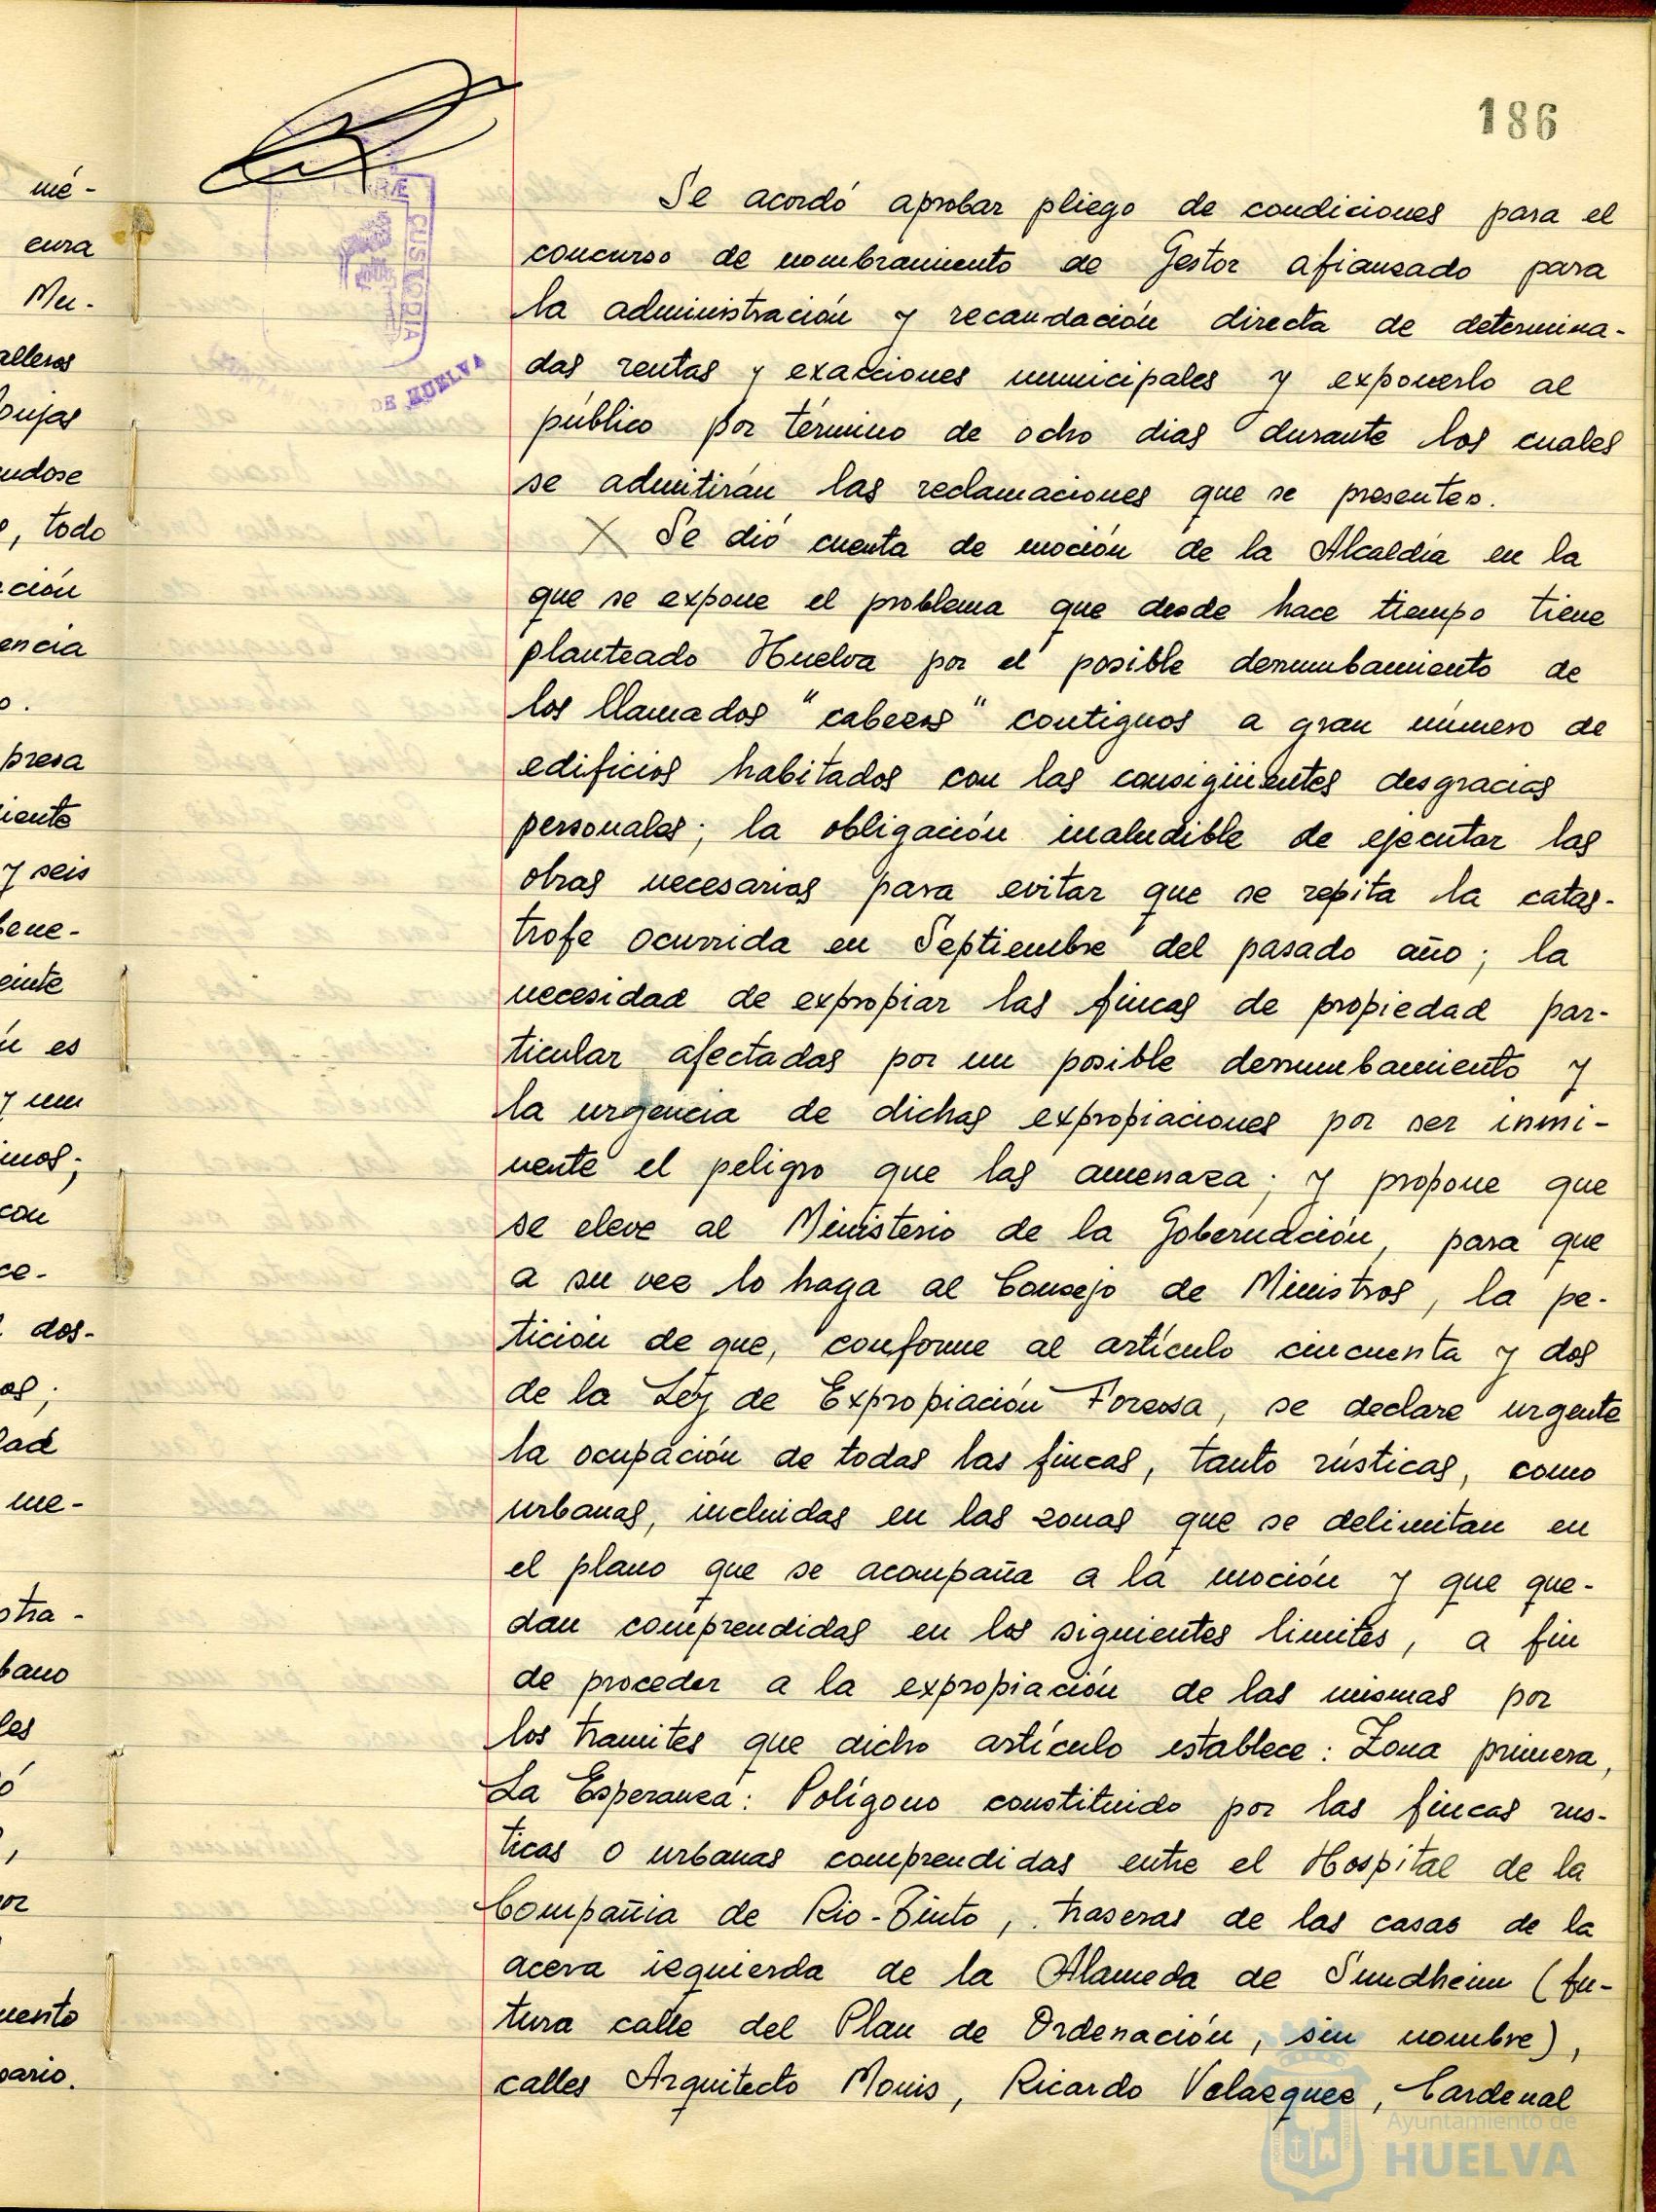 186
Se acordó aprobar pliego de condiciones para el
concurso de nombramiento de Gestor afianzado para
la administración y recaudación directa de determina-
das rentas y exacciones municipales y exponerlo al
público por término de ocho dias durante los cuales
se admitirán las reclamaciones que se presenten.
X Se dió cuenta de moción de la Alcaldía en la
que se expone el problema que desde hace tiempo tiene
planteado Huelva por el posible derrumbamiento de
los llamados "cabezos" contiguos a gran número de
edificios habitados con las consigüientes desgracias
personales; la obligación inaludible de ejecutar las
obras necesarias para evitar que se repita la catas-
trofe ocurrida en Septiembre del pasado año; la
necesidad de expropiar las fincas de propiedad par-
ticular afectadas por un posible derrumbamiento y
la urgencia de dichas expropiaciones por ser inmi-
nente el peligro que las amenaza; y propone que
se eleve al Ministerio de la Gobernación, para que
a su vez lo haga al Consejo de Ministros, la pe-
tición de que, conforme al artículo cincuenta y dos
de la Ley de Expropiación Forzosa, se declare urgente
la ocupación de todas las fincas, tanto rústicas, como
urbanas, incluidas en las zonas que se delimitan en
el plano que se acompaña a la moción y que que-
dan comprendidas en los siguientes limites, a fin
de proceder a la expropiación de las mismas por
los tramites que dicho artículo establece: Zona primera,
La Esperanza: Polígono constituido por las fincas rus-
ticas o urbanas comprendidas entre el Hospital de la
Compañia de Rio-Tinto, traseras de las casas de la
acera izquierda de la Alameda de Sundheim (fu-
tura calle del Plan de Ordenación, sin nombre),
calles Arquitecto Monis, Ricardo Velazquez, Cardenal
CUSTODIA
DE HUELVA
mé-
cura
Mu-
alleros
ndose
, todo
ción
encia
o.
presa
iente
y seis
bene-
einte
es
y un
imos;
con
ce-
dos-
os;
dad
me-
stra-
bano
les
ó
or
mento
pario.
Ayuntamiento de
HUELVA